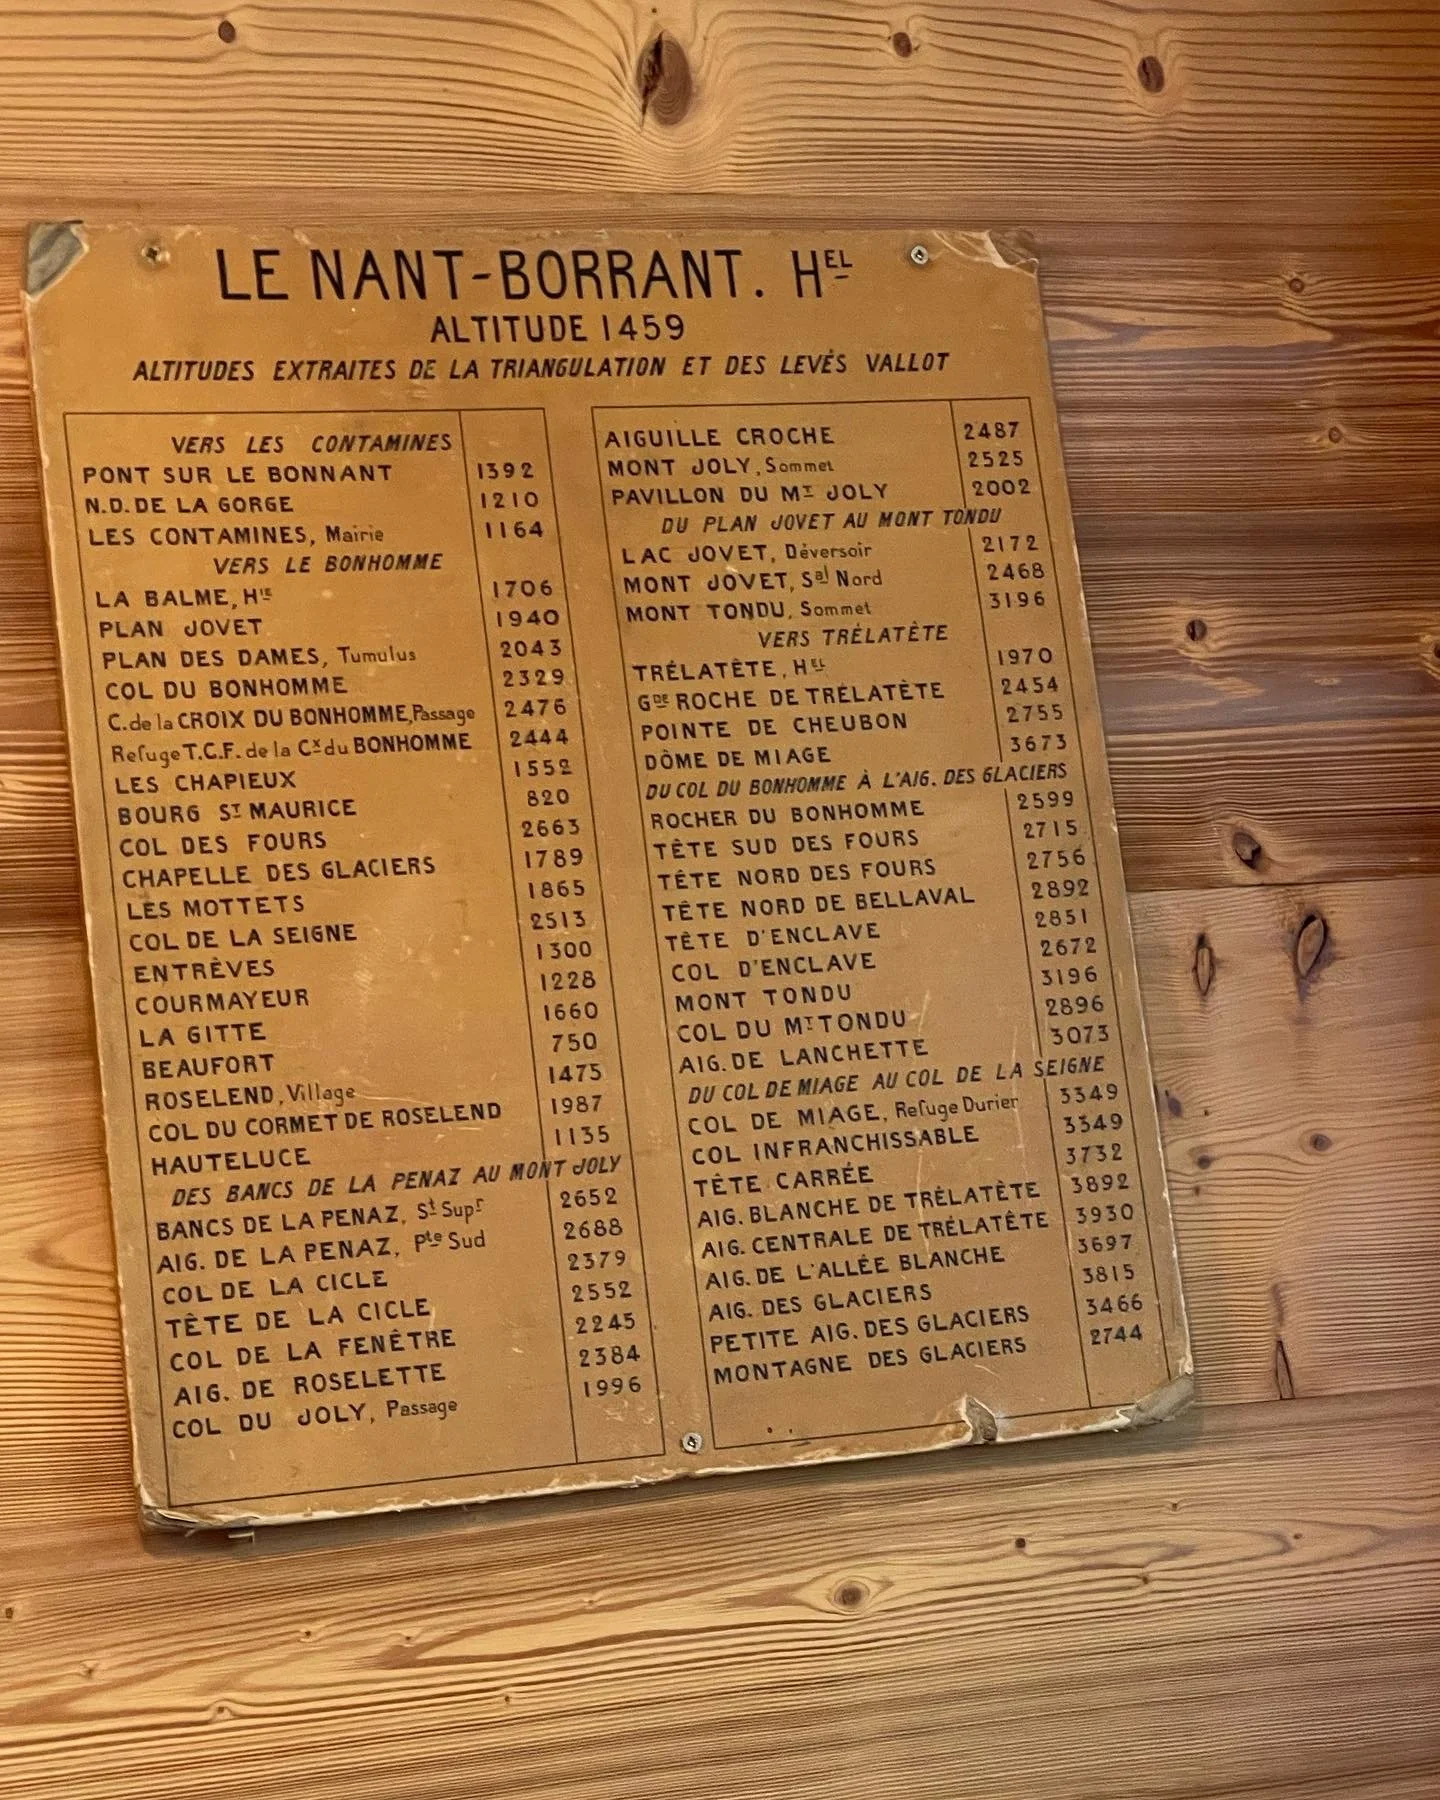 LE NANT-BORRANT. HEL
ALTITUDE 1459
ALTITUDES EXTRAITES DE LA TRIANGULATION ET DES LEVÉS VALLOT
VERS LES CONTAMINES
PONT SUR LE BONNANT 1392
N.D. DE LA GORGE 1210
LES CONTAMINES, Mairie 1164
VERS LE BONHOMME
LA BALME, HIE 1706
PLAN JOVET 1940
PLAN DES DAMES, Tumulus 2043
COL DU BONHOMME 2329
C. de la CROIX DU BONHOMME, Passage 2476
Refuge T.C.F. de la Cx du BONHOMME 2444
LES CHAPIEUX 1552
BOURG ST MAURICE 820
COL DES FOURS 2663
CHAPELLE DES GLACIERS 1789
LES MOTTETS 1865
COL DE LA SEIGNE 2513
ENTRÈVES 1300
COURMAYEUR 1228
LA GITTE 1660
BEAUFORT 750
ROSELEND, Village 1475
COL DU CORMET DE ROSELEND 1987
HAUTELUCE 1135
DES BANCS DE LA PENAZ AU MONT JOLY
BANCS DE LA PENAZ, St Supr 2652
AIG. DE LA PENAZ, Pte Sud 2688
COL DE LA CICLE 2379
TÊTE DE LA CICLE 2552
COL DE LA FENÊTRE 2245
AIG. DE ROSELETTE 2384
COL DU JOLY, Passage 1996
AIGUILLE CROCHE 2487
MONT JOLY, Sommet 2525
PAVILLON DU MT JOLY 2002
DU PLAN JOVET AU MONT TONDU
LAC JOVET, Déversoir 2172
MONT JOVET, Sal Nord 2468
MONT TONDU, Sommet 3196
VERS TRÉLATÊTE
TRÉLATÊTE, HEL 1970
GDE ROCHE DE TRÉLATÊTE 2454
POINTE DE CHEUBON 2755
DÔME DE MIAGE 3673
DU COL DU BONHOMME À L'AIG. DES GLACIERS
ROCHER DU BONHOMME 2599
TÊTE SUD DES FOURS 2715
TÊTE NORD DES FOURS 2756
TÊTE NORD DE BELLAVAL 2892
TÊTE D'ENCLAVE 2851
COL D'ENCLAVE 2672
MONT TONDU 3196
COL DU MT TONDU 2896
AIG. DE LANCHETTE 3073
DU COL DE MIAGE AU COL DE LA SEIGNE
COL DE MIAGE, Refuge Durier 3349
COL INFRANCHISSABLE 3349
TÊTE CARRÉE 3732
AIG. BLANCHE DE TRÉLATÊTE 3892
AIG. CENTRALE DE TRÉLATÊTE 3930
AIG. DE L'ALLÉE BLANCHE 3697
AIG. DES GLACIERS 3815
PETITE AIG. DES GLACIERS 3466
MONTAGNE DES GLACIERS 2744